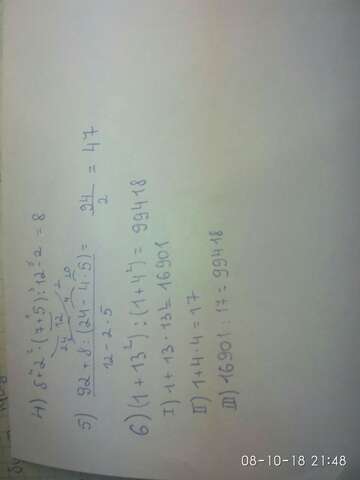 4) 8+2²·(7+5):12-2 = 8
24 12 2
5) 92+8:(24-4·5) = 94 = 47
12-2·5 2
4 20
6) (1+13²):(1+4²) = 99418
I) 1+13·13²=16901
II) 1+4·4=17
III) 16901:17=99418
08-10-18 21:48